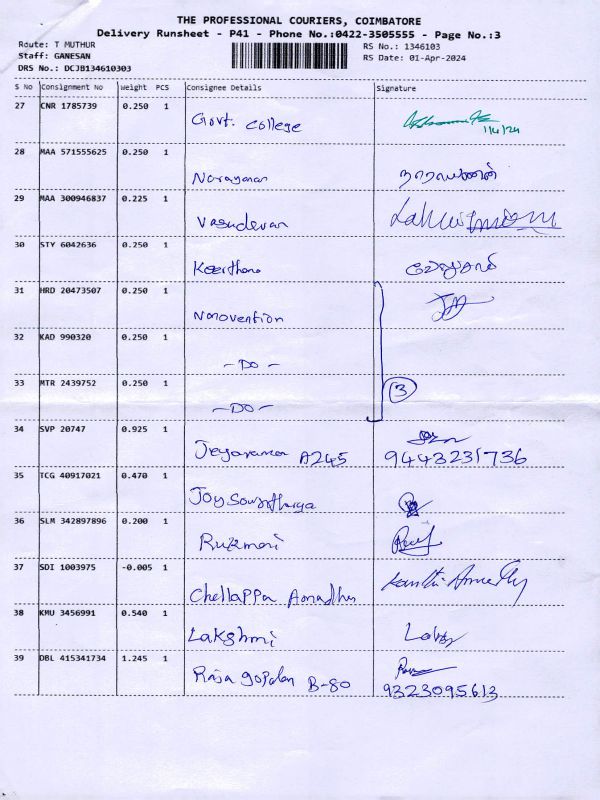 THE PROFESSIONAL COURIERS, COIMBATORE
Delivery Runsheet - P41 - Phone No.:0422-3505555 - Page No.:3
Route: T MUTHUR
RS No.: 1346103
Staff: GANESAN
RS Date: 01-Apr-2024
DRS No.: DCJB134610303
S No Consignment No Weight PCS Consignee Details Signature
27 CNR 1785739 0.250 1
Govt. College
1/4/24
28 MAA 571555625 0.250 1
Narayanan நாராயணன்
29 MAA 300946837 0.225 1
Vasudevan
30 STY 6042636 0.250 1
Keerthana
31 HRD 20473507 0.250 1
Nanovention
32 KAD 990320 0.250 1
-DO-
33 MTR 2439752 0.250 1
3
-DO-
34 SVP 20747 0.925 1
Jeyaraman A245 9443231736
35 TCG 40917021 0.470 1
Joy
36 SLM 342897896 0.200 1
Rukmani
37 SDI 1003975 -0.005 1
Chellappa
38 KMU 3456991 0.540 1
Lakshmi
39 DBL 415341734 1.245 1
Raja gopalan B-80 9323095613